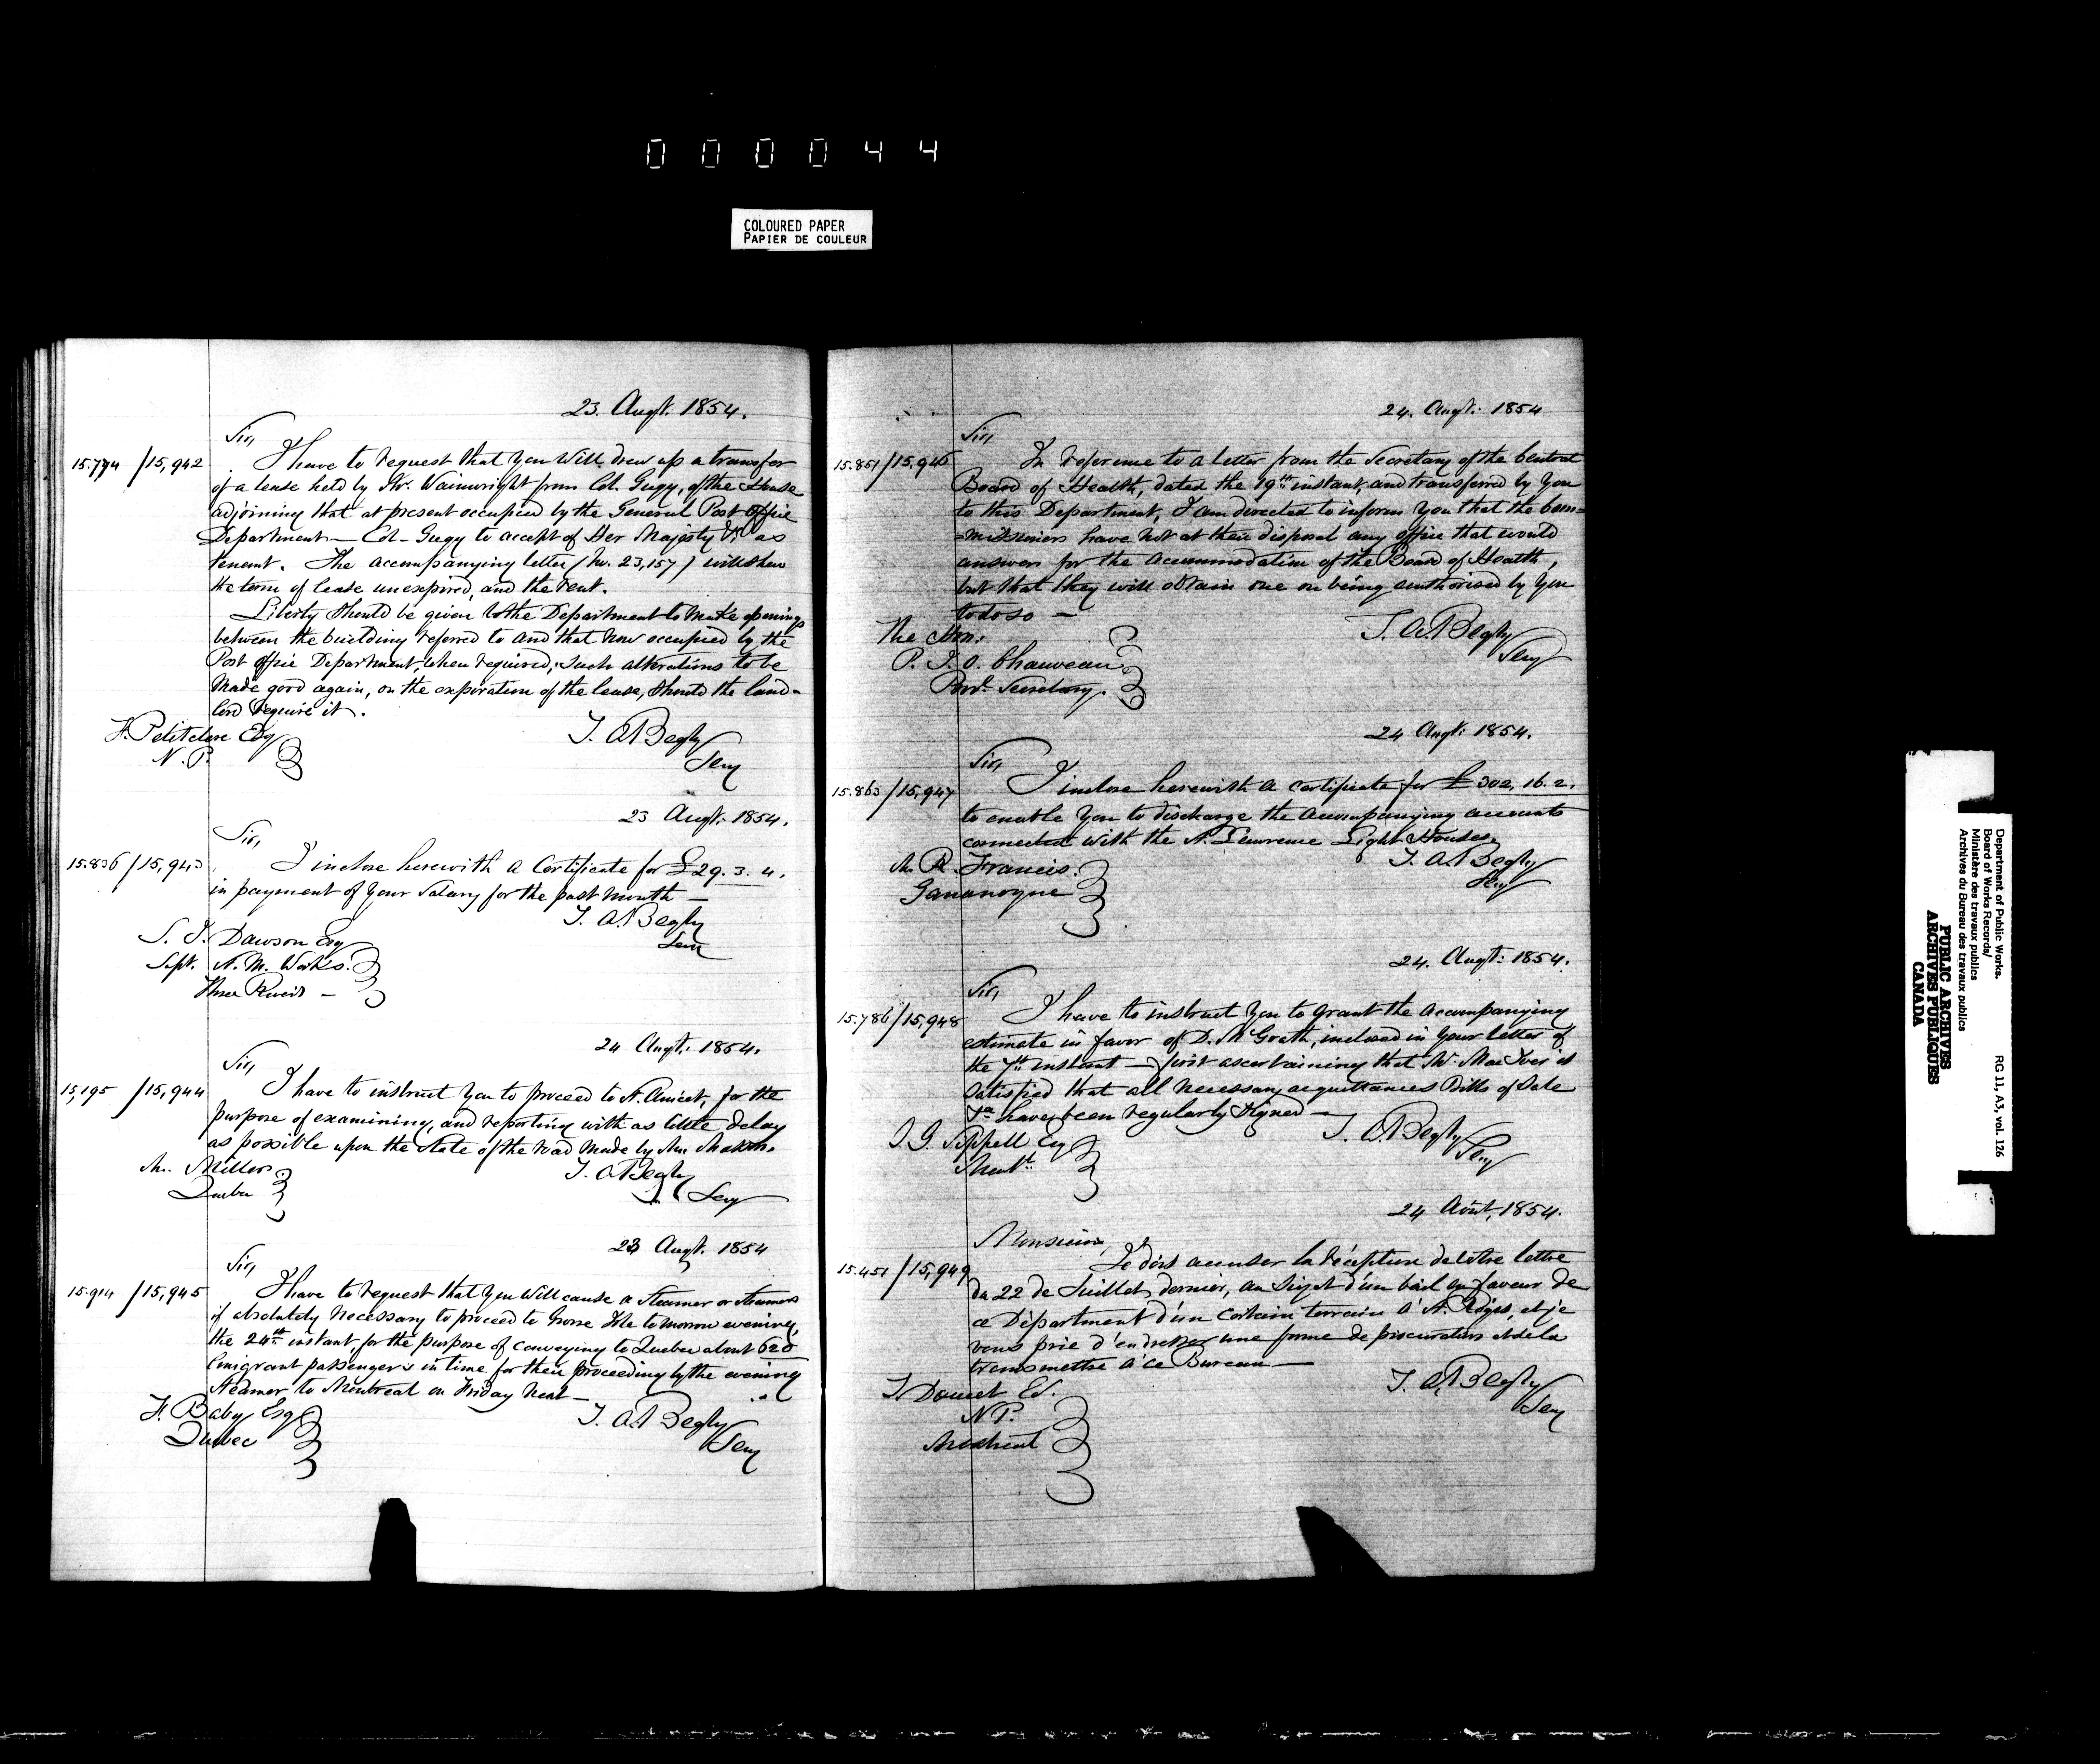 000044
COLOURED PAPER
PAPIER DE COULEUR
23. Augt. 1854.
Sir,
15.794 / 15,942 I have to request that you will draw up a transfer
of a lease held by Mr. Wainwright from Col. Gugy, of the House
adjoining that at present occupied by the General Post Office
Department — Col. Gugy to accept of Her Majesty &c as
tenant. The accompanying letter (No. 23,157) will shew
the term of lease unexpired, and the rent.
Liberty should be given to the Department to make openings
between the building referred to and that now occupied by the
Post Office Department, when required; such alterations to be
made good again, on the expiration of the lease, should the land-
lord require it.
F. Petitclerc Esq
N.P.
T. A. Begly
Secy
23 Augt. 1854.
Sir,
15.836 / 15,943 I inclose herewith a Certificate for £29. 3. 4.
in payment of your Salary for the past month —
T. A. Begly
Secy
S. J. Dawson Esq
Supt. St. M. Works.
Three Rivers —
24 Augt. 1854.
Sir,
15,195 / 15,944 I have to instruct you to proceed to St. Anicet, for the
purpose of examining, and reporting with as little delay
as possible upon the State of the road made by Mr.
Mr. Miller
Quebec
T. A. Begly
Secy
23 Augt. 1854
Sir,
15.914 / 15,945 I have to request that you will cause a Steamer or Steamers
if absolutely necessary to proceed to Grosse Isle to morrow evening,
the 24th instant, for the purpose of conveying to Quebec about 620
Emigrant passengers in time for their proceeding by the evening
Steamer to Montreal on Friday next —
F. Baby Esq
Quebec
T. A. Begly
Secy
24. Augt. 1854
Sir,
15.851 / 15,946 In reference to a letter from the Secretary of the Central
Board of Health, dated the 19th instant, and transferred by you
to this Department, I am directed to inform you that the Com=
=missioners have not at their disposal any office that would
answer for the accommodation of the Board of Health,
but that they will obtain one on being authorised by you
to do so —
The Hon:
P. J. O. Chauveau
Provl. Secretary.
T. A. Begly
Secy
24 Augt. 1854.
Sir,
15.863 / 15,947 I inclose herewith a certificate for £302. 16. 2.
to enable you to discharge the accompanying accounts
connected with the St. Lawrence Light Houses.
Mr. R. Francis.
Gananoque
T. A. Begly
Secy
24. Augt. 1854.
Sir,
15.786 / 15,948 I have to instruct you to grant the accompanying
estimate in favor of D. McGrath, inclosed in your letter of
the 7th instant — first ascertaining that Mr. MacIver is
satisfied that all necessary acquittances Bills of Sale
&ca have been regularly signed —
J. G. Sippell Esq
Montl.
T. A. Begly
Secy
24 Août, 1854.
Monsieur,
15.451 / 15,949 Je dois accuser la réception de votre lettre
du 22 de Juillet dernier, au sujet d'un bail en faveur de
ce Départment d'un certain terrain à St. Régis, et je
vous prie d'en dresser une forme de procuration et de la
transmettre à ce Bureau —
T. Doucet Ec.
N.P.
Montreal
T. A. Begly
Secy
Department of Public Works.
Board of Works Records/
Ministère des travaux publics
Archives du Bureau des travaux publics
RG 11, A3, vol. 126
PUBLIC ARCHIVES
ARCHIVES PUBLIQUES
CANADA